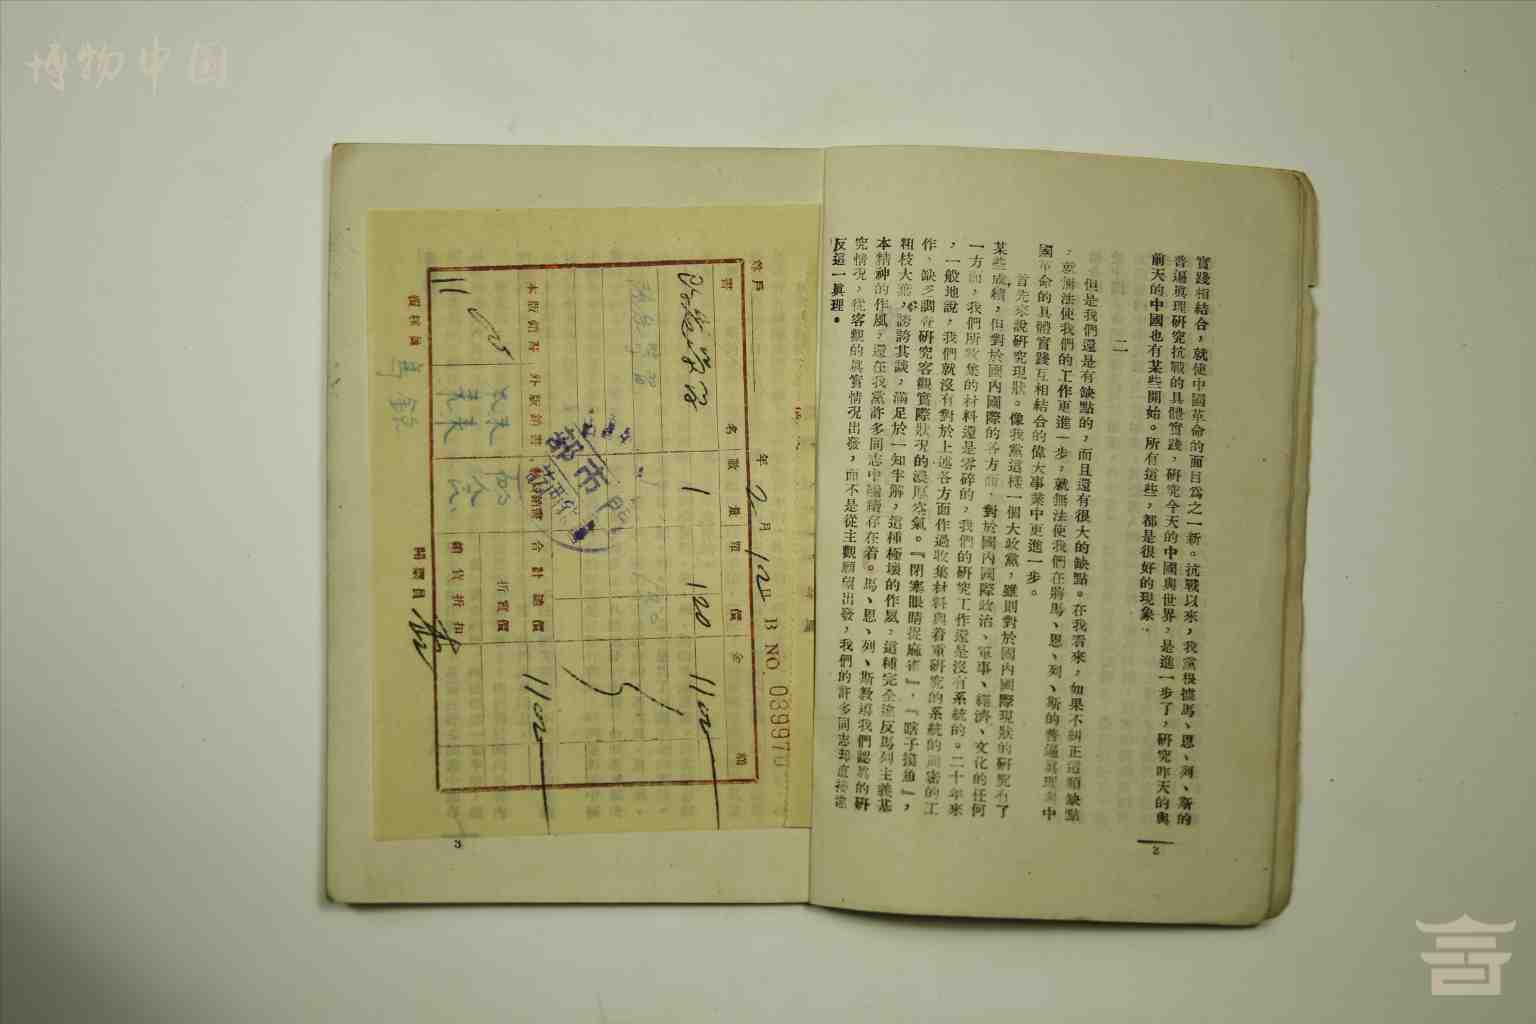 博物中国
實踐相結合，就使中國革命的面目爲之一新。抗戰以來，我黨根據馬、恩、列、斯的
普遍眞理研究抗戰的具體實踐，研究今天的中國與世界，是進一步了，研究昨天的與
前天的中國也有某些開始。所有這些，都是很好的現象。
二
但是我們還是有缺點的，而且還有很大的缺點。在我看來，如果不糾正這類缺點
，就無法使我們的工作更進一步，就無法使我們在將馬、恩、列、斯的普遍眞理與中
國革命的具體實踐互相結合的偉大事業中更進一步。
首先來說研究現狀。像我黨這樣一個大政黨，雖則對於國內國際現狀的研究有了
某些成績，但對於國內國際的各方面，對於國內國際政治、軍事、經濟、文化的任何
一方面，我們所收集的材料還是零碎的，我們的研究工作還是沒有系統的。二十年來
，一般地說，我們就沒有對於上述各方面作過收集材料與着重研究的系統的周密的工
作，缺乏調查研究客觀實際狀況的濃厚空氣。『閉塞眼睛捉麻雀』，『瞎子摸魚』，
粗枝大葉，誇誇其談，滿足於一知半解，這種極壞的作風，這種完全違反馬列主義基
本精神的作風，還在我黨許多同志中繼續存在着。馬、恩、列、斯教導我們認眞的研
究情況，從客觀的眞實情況出發，而不是從主觀願望出發，我們的許多同志却直接違
反這一眞理。
2
年 2 月 12 日 B NO. 039970
書 名 數 量 單 價 金 額
1 120
合計總價
折實價
銷貨折扣
開票員
覆核員
3